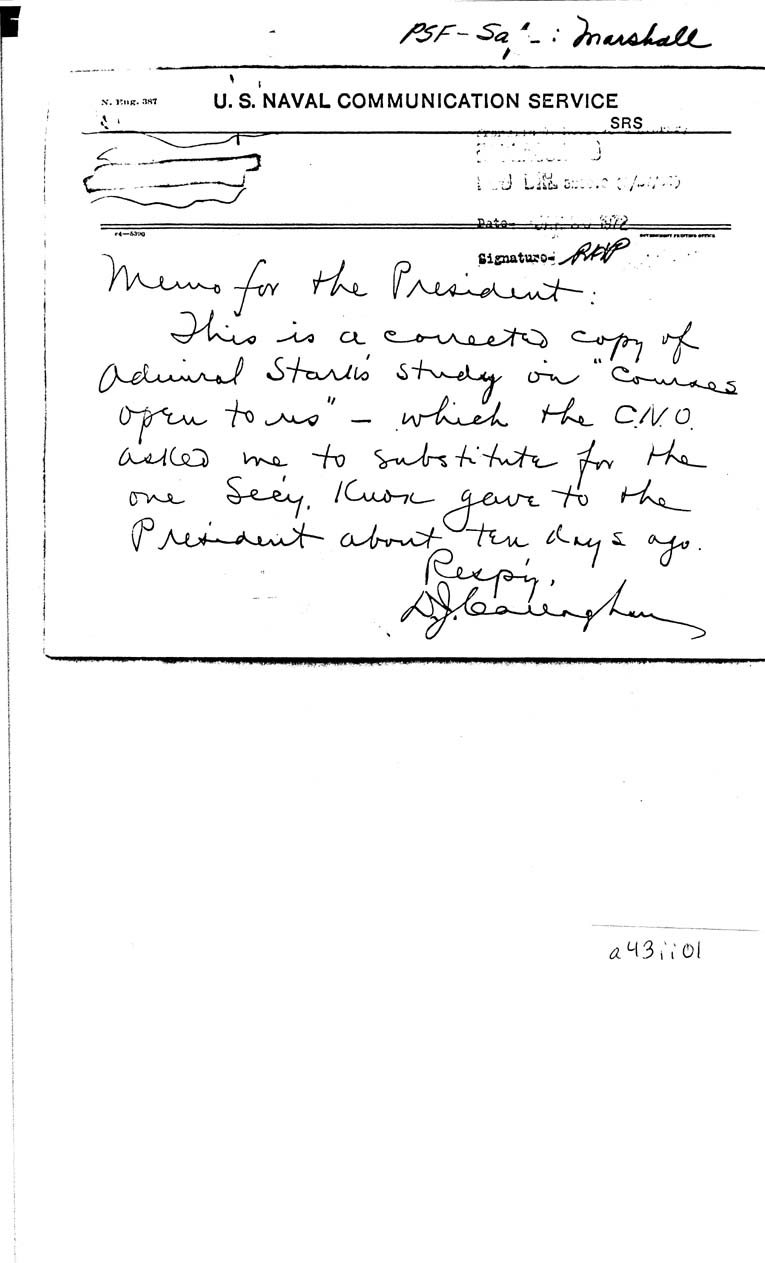 PSF - : Marshall
N. Eng. 387
U. S. NAVAL COMMUNICATION SERVICE
SRS
Date- 1972
Signature- RHP
Memo for the President:
This is a corrected copy of
Admiral Stark's study on "Courses
open to us" – which the C.N.O.
asked me to substitute for the
one Sec'y. Knox gave to the
President about ten days ago.
Resp'y,
D.J. Callaghan
a43ii01